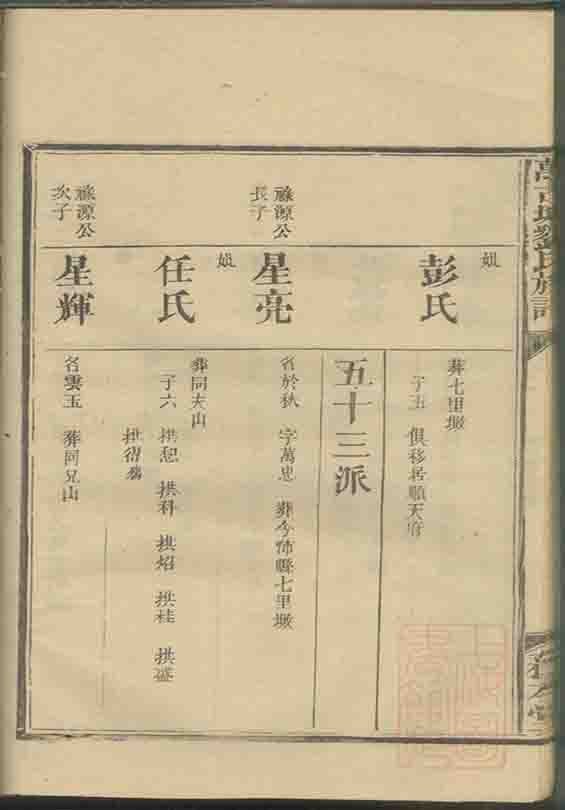 劉氏族譜
妣
彭氏
葬七里塅
子五 俱移居順天府
五十三派
祿源公
長子
星亮
名於秋 字萬忠 葬今沛縣七里塅
妣
任氏
葬同夫山
子六 拱杞 拱科 拱炤 拱桂 拱盛
祿源公
次子
星輝
名雲玉 葬同兄山